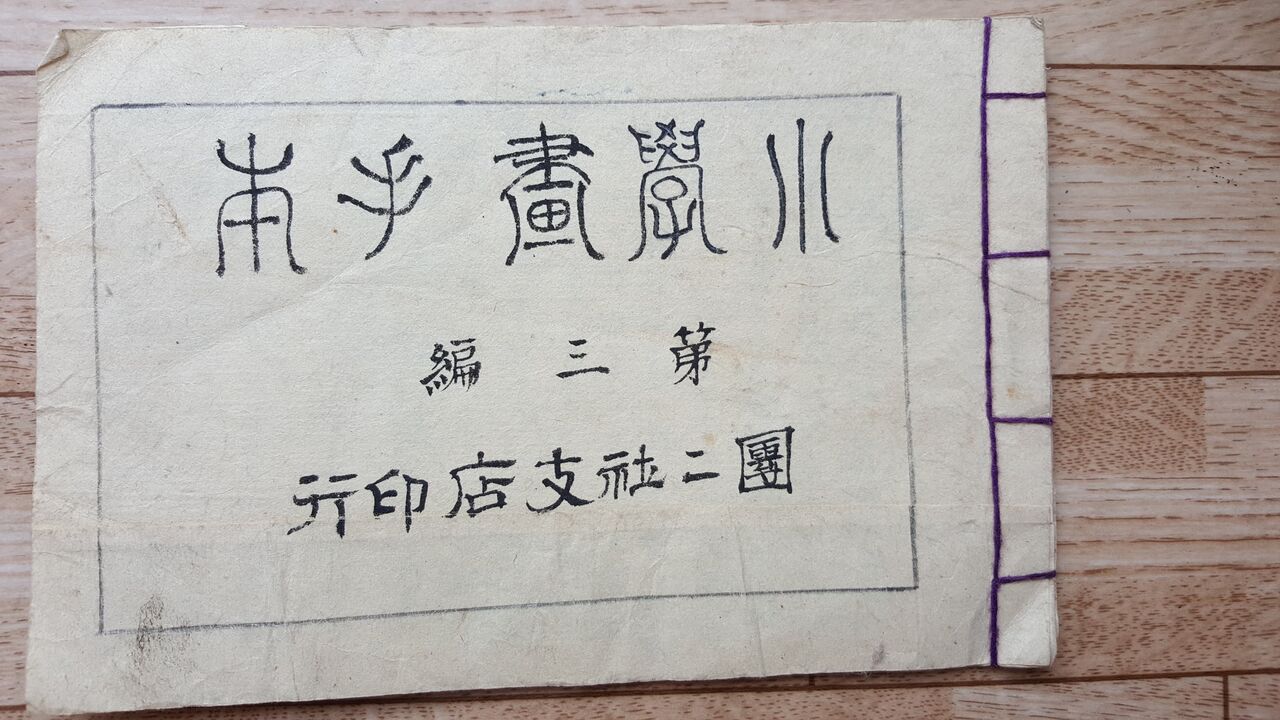 小學畫手本
第三編
團二社支店印行